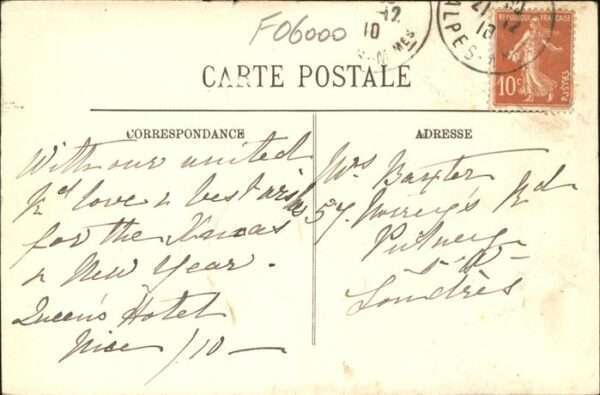 F06000
12
10
21 12
10
ALPES-M
REPUBLIQUE FRANÇAISE
10c
POSTES
CARTE POSTALE
CORRESPONDANCE
ADRESSE
With our united
love & best wishes
for the Xmas
& New Year.
Queen's Hotel
Nice /10
Mrs Baxter
57. Rd
Putney
Londres